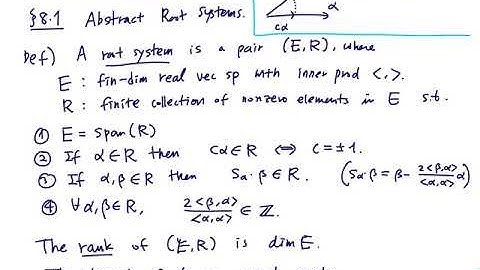 §8.1 Abstract Root Systems.
α
cα
Def) A root system is a pair (E, R), where
E : fin-dim real vec sp with inner prod <,>.
R : finite collection of nonzero elements in E s.t.
① E = span(R)
② If α∈R then cα∈R ⟺ c=±1.
③ If α,β∈R then Sα·β∈R. (Sα·β=β-2<β,α>/<α,α> α)
④ ∀α,β∈R, 2<β,α>/<α,α> ∈ ℤ.
The rank of (E,R) is dim E.